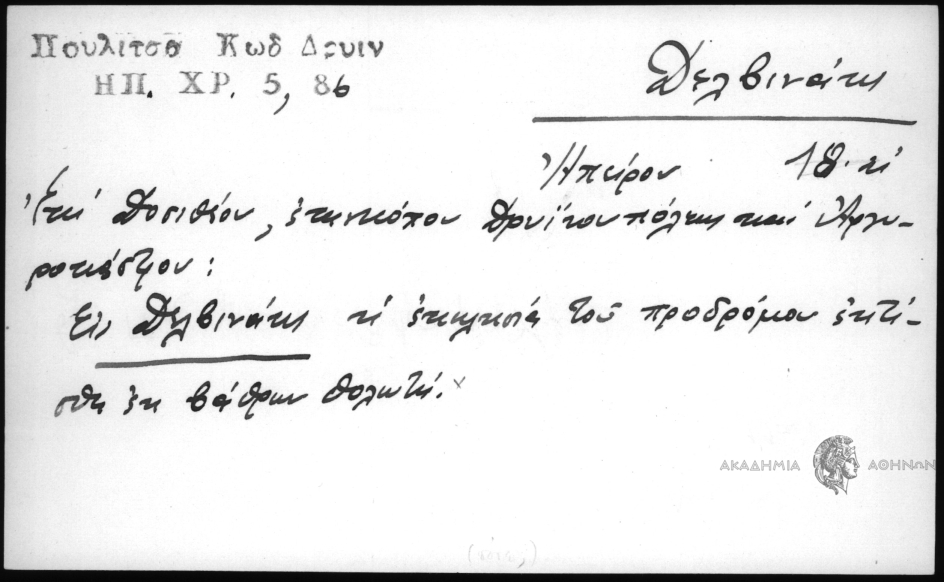 Πουλίτσα Κωδ Δρυιν
ΗΠ. ΧΡ. 5, 86
Δελβινάκι
Ἠπείρου 18. αἰ
Ἐπί Δοσιθέου, ἐπισκόπου Δρυϊνουπόλεως καί Ἀργυ-
ροκάστρου:
Εἰς Δελβινάκι ἡ ἐκκλησιά τοῦ προδρόμου ἐκτί-
σθη ἐκ βάθρων θολωτή.
ΑΚΑΔΗΜΙΑ ΑΘΗΝΩΝ